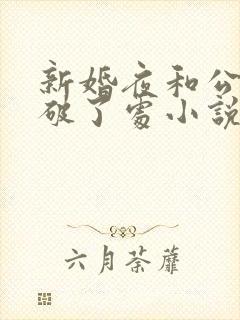 新婚夜和公
破了处小説
六月荼蘼